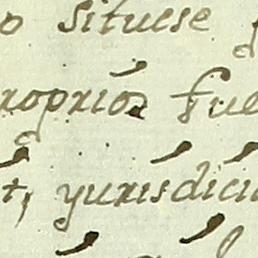 o situese
roprios fue
t, yurisdici